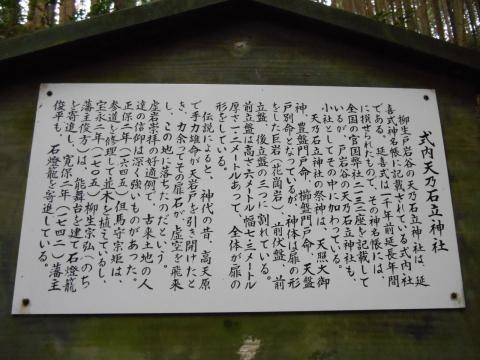 式内天乃石立神社
柳生の岩谷の天乃石立神社は、延
喜式神名帳に記載されている式内社
である。延喜式は一千年前延長年間
に撰せられたもので、その神名帳には
全国の官国弊社二一三二座を記載して
いるが、戸岩谷の天乃石立神社も、
小社としてその中に加わっている。
天乃石立神社の祭神は、天照大御
神、豊盤門戸命、櫛盤門戸命、天盤
戸別命となっているが、神体は扉の形
をした巨岩(花崗岩)「前伏盤、前
立盤、後立盤の三つに割れている。
前立盤は高さ六メートル、幅七・三メートル
厚さ一・二メートルあって、全体が扉の
形をしている。
伝説によると、神代の昔、高天原
で手力雄命が天岩戸を引き開けたと
き、力余ってその扉石が、虚空を飛来
し、この地に落ちたのだという。
虚岩崇拝の好適例で、古来土地の人
達の信仰は深く強いものがあった。
正保二年(一六四五)但馬守宗矩は、
参道を修理して並木を植えているし、
宝永二年(一七〇五)柳生宗弘(のち
藩主俊方)は、能舞台を建て石燈籠
を寄進し、寛保二年(一七四二)藩主
俊平も、石燈籠を寄進している。